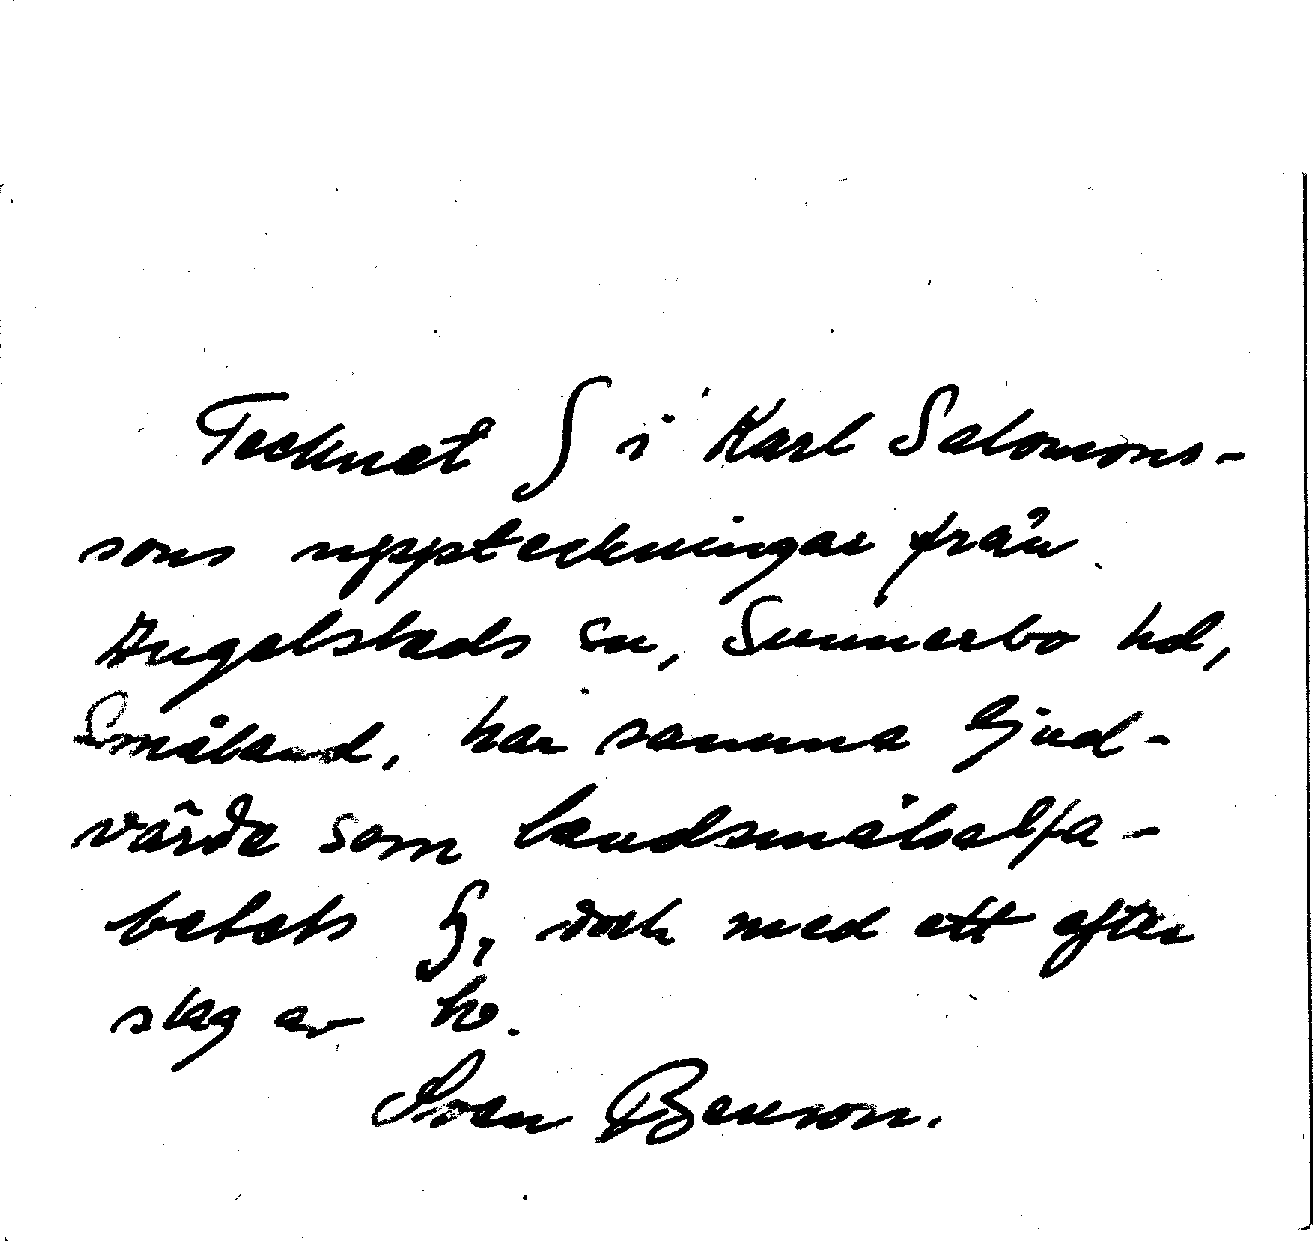 Tecknet ʃ i Karl Salomons-
sons uppteckningar från
Angelstads sn, Sunnerbo hd,
Småland, har samma ljud-
värde som landsmålsalfa-
betets ɧ, dock med ett efter
slag av
Sven Benson.